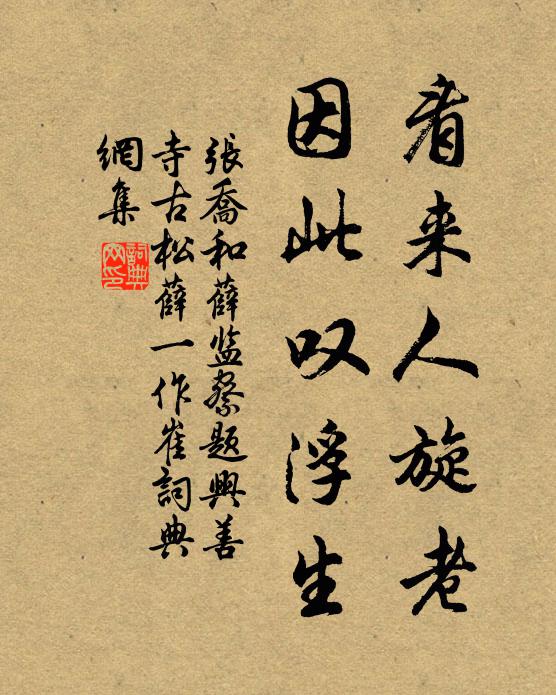 看来人旋老
因此叹浮生
張喬和薛监察题興善
寺古松薛一作崔詞典
網集
詞典
网印